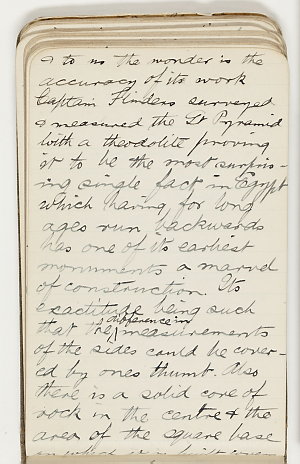 & to us the wonder is the
accuracy of its work
Captain Flinders surveyed
& measured the Gt Pyramid
with a theodolite proving
it to be the most surpris-
ing single fact in Egypt
which having for long
ages run backwards
has one of its earliest
monuments a marvel
of construction. Its
exactitude being such
that the difference in measurements
of the sides could be cover-
ed by ones thumb. Also
there is a solid core of
rock in the centre & the
area of the square base
on which it is built covers